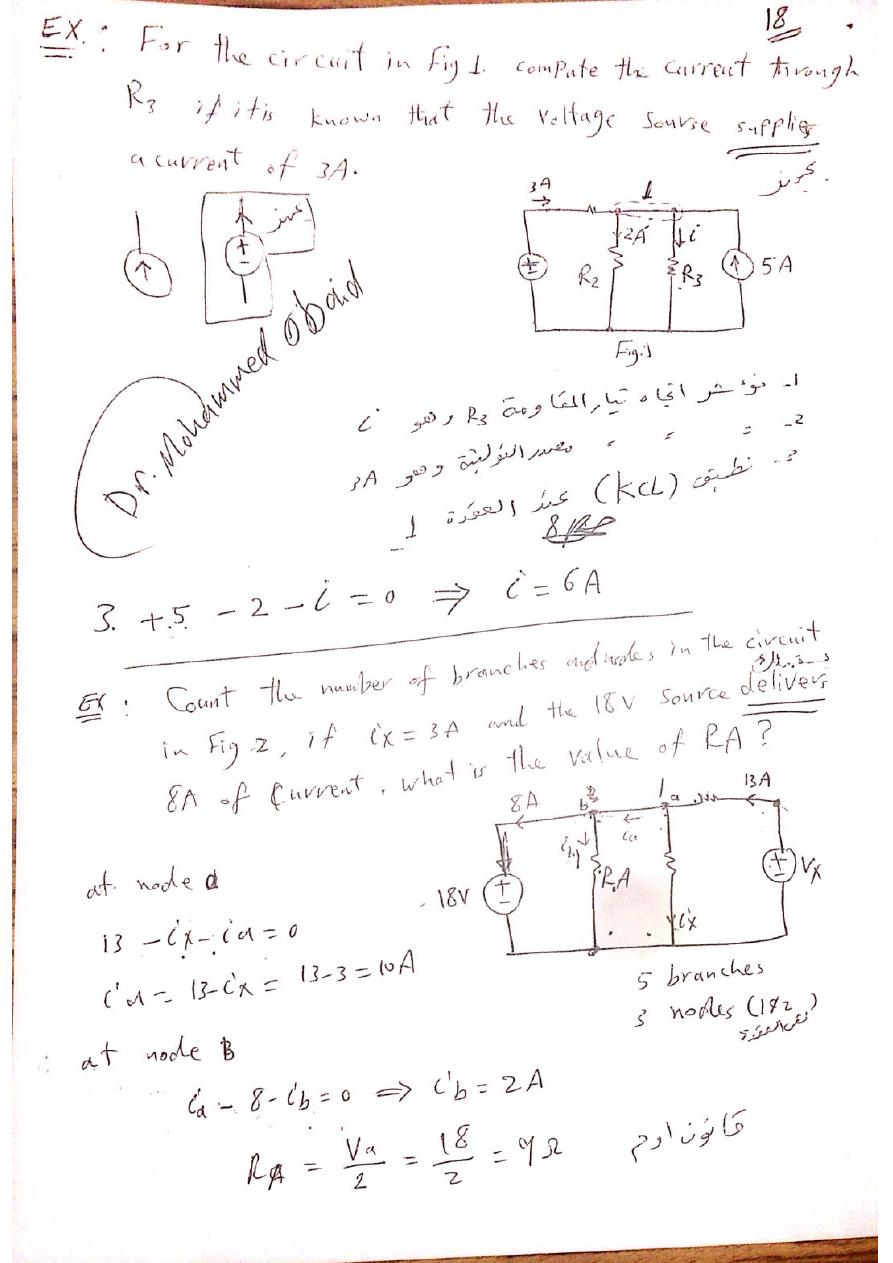 18
EX. : For the circuit in fig 1. compute the current through
R3 if it is known that the voltage sourse supplies
a current of 3A.
يجهز
يجهز
3A
1
2A
i
R2
R3
5A
Fig.1
Dr. Mohammed Obaid
1- نؤشر اتجاه تيار المقاومة R3 وهو i
2- = = = مصدر الفولتية وهو 3A
3- نطبق (KCL) عند العقدة 1
3 + 5 - 2 - i = 0 ⇒ i = 6A
EX : Count the number of branches and nodes in the circuit
in Fig 2, if ix = 3A and the 18 V source delivers
8A of Current, what is the value of RA ?
8A
b
2
1
a
13A
ia
ib
RA
18V
ix
Vx
5 branches
3 nodes (1&2
نفس العقدة)
at node a
13 - ix - ia = 0
ia = 13 - ix = 13 - 3 = 10A
at node B
ia - 8 - ib = 0 ⇒ ib = 2A
RA = Va/2 = 18/2 = 9Ω قانون اوم